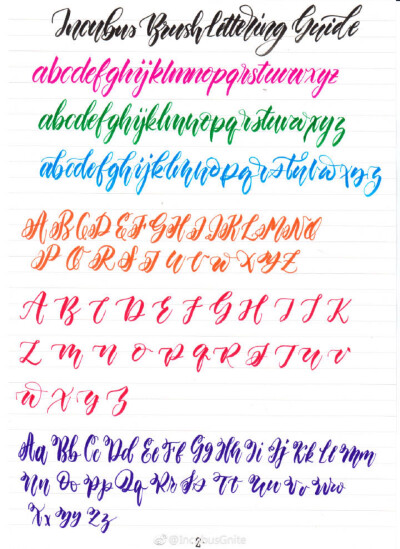 Incubus Brushlettering Guide
abcdefghijklmnopqrstuvwxyz
abcdefghijklmnopqrstuvwxyz
abcdefghijklmnopqrstuvwxyz
A B C D E F G H I J K L M N O
P Q R S T U V W X Y Z
A B C D E F G H I J K
L M N O P Q R S T U V
W X Y Z
Aa Bb Cc Dd Ee Ff Gg Hh Ii Jj Kk Ll Mm
Nn Oo Pp Qq Rr Ss Tt Uu Vv Ww
Xx Yy Zz
@IncubusGnite
2